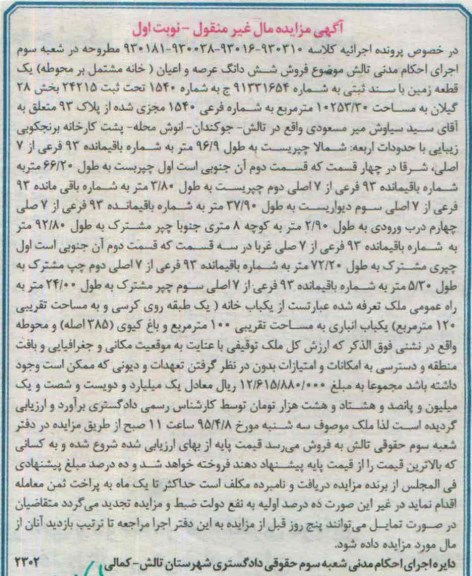 آگهی مزایده مال غیر منقول - نوبت اول
در خصوص پرونده اجرائیه کلاسه ۹۳۰۳۱۰-۹۳۰۱۶-۹۳۰۰۳۸-۹۳۰۱۸۱ مطروحه در شعبه سوم
اجرای احکام مدنی تالش موضوع فروش شش دانگ عرصه و اعیان ( خانه مشتمل بر محوطه) یک
قطعه زمین با سند ثبتی به شماره ۹۱۳۳۱۶۵۴ ج به شماره ۱۵۴۰ تحت ثبت ۲۴۲۱۵ بخش ۲۸
گیلان به مساحت ۱۰۲۵۳/۳۰ مترمربع به شماره فرعی ۱۵۴۰ مجزی شده از پلاک ۹۳ متعلق به
آقای سید سیاوش میر مسعودی واقع در تالش- جوکندان- انوش محله- پشت کارخانه برنجکوبی
زیبایی با حدودات اربعه: شمالا چپریست به طول ۹۶/۹ متر به شماره باقیمانده ۹۳ فرعی از ۷
اصلی، شرقا در چهار قسمت که قسمت دوم آن جنوبی است اول چپریست به طول ۶۶/۲۰ متر به
شماره باقیمانده ۹۳ فرعی از ۷ اصلی دوم چپریست به طول ۳/۸۰ متر به شماره باقی مانده ۹۳
فرعی از ۷ اصلی سوم دیواریست به طول ۳۷/۹۰ متر به شماره باقیمانده ۹۳ فرعی از ۷ صلی
چهارم درب ورودی به طول ۲/۹۰ متر به کوچه ۸ متری جنوبا چپر مشترک به طول ۹۲/۸۰ متر
به شماره باقیمانده ۹۳ فرعی از ۷ صلی غربا در سه قسمت که قسمت دوم آن جنوبی است اول
چپری مشترک به طول ۷۲/۲۰ متر به شماره باقیمانده ۹۳ فرعی از ۷ اصلی دوم چپ مشترک به
طول ۵/۳۰ متر به شماره باقیمانده ۹۳ فرعی از ۷ اصلی سوم چپر مشترک به طول ۲۴/۰۰ متر به
راه عمومی ملک تعرفه شده عبارتست از یکباب خانه ( یک طبقه روی کرسی و به مساحت تقریبی
۱۲۰ مترمربع) یکباب انباری به مساحت تقریبی ۱۰۰ مترمربع و باغ کیوی (۳۸۵ اصله) و محوطه
واقع در نشتی فوق الذکر که ارزش کل ملک توقیفی با عنایت به موقعیت مکانی و جغرافیایی و بافت
منطقه و دسترسی به امکانات و امتیازات بدون در نظر گرفتن تعهدات و دیونی که ممکن است وجود
داشته باشد مجموعا به مبلغ ۱۲/۶۱۵/۸۸۰/۰۰۰ ریال معادل یک میلیارد و دویست و شصت و یک
میلیون و پانصد و هشتاد و هشت هزار تومان توسط کارشناس رسمی دادگستری برآورد و ارزیابی
گردیده است لذا ملک موصوف سه شنبه مورخ ۹۵/۴/۸ ساعت ۱۱ صبح از طریق مزایده در دفتر
شعبه سوم حقوقی تالش به فروش می‌رسد قیمت پایه از بهای ارزیابی شده شروع شده و به کسانی
که بالاترین قیمت را از قیمت پایه پیشنهاد دهند فروخته خواهد شد و ده درصد مبلغ پیشنهادی
فی المجلس از برنده مزایده دریافت و نامبرده مکلف است حداکثر تا یک ماه به پراخت ثمن معامله
اقدام نماید در غیر این صورت ده درصد اولیه به نفع دولت ضبط و مزایده تجدید می‌گردد متقاضیان
در صورت تمایل می‌توانند پنج روز قبل از مزایده به این دفتر اجرا مراجعه تا ترتیب بازدید آنان از
مال مورد مزایده داده شود.
دایره اجرای احکام مدنی شعبه سوم حقوقی دادگستری شهرستان تالش - کمالی ۲۳۰۲